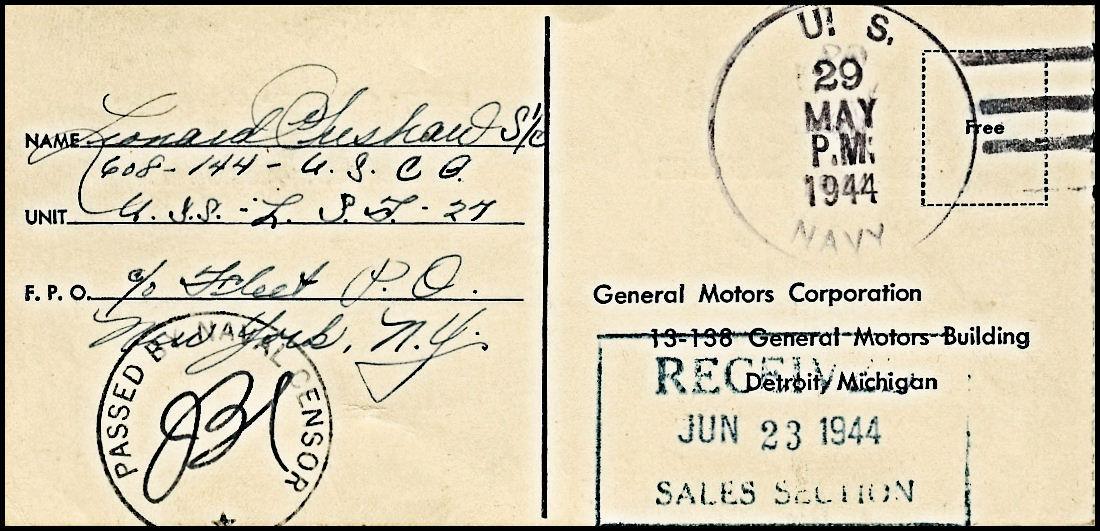 NAME Leonard Crushaw S1/c
608-144-U.S.C.G.
UNIT U.S.S.-L.S.T.-27
F. P. O. c/o Fleet P.O.
New York, N.Y.
PASSED BY NAVAL CENSOR
U. S.
29
MAY
P.M.
1944
NAVY
Free
General Motors Corporation
13-138 General Motors Building
Detroit, Michigan
RECEIVED
JUN 23 1944
SALES SECTION